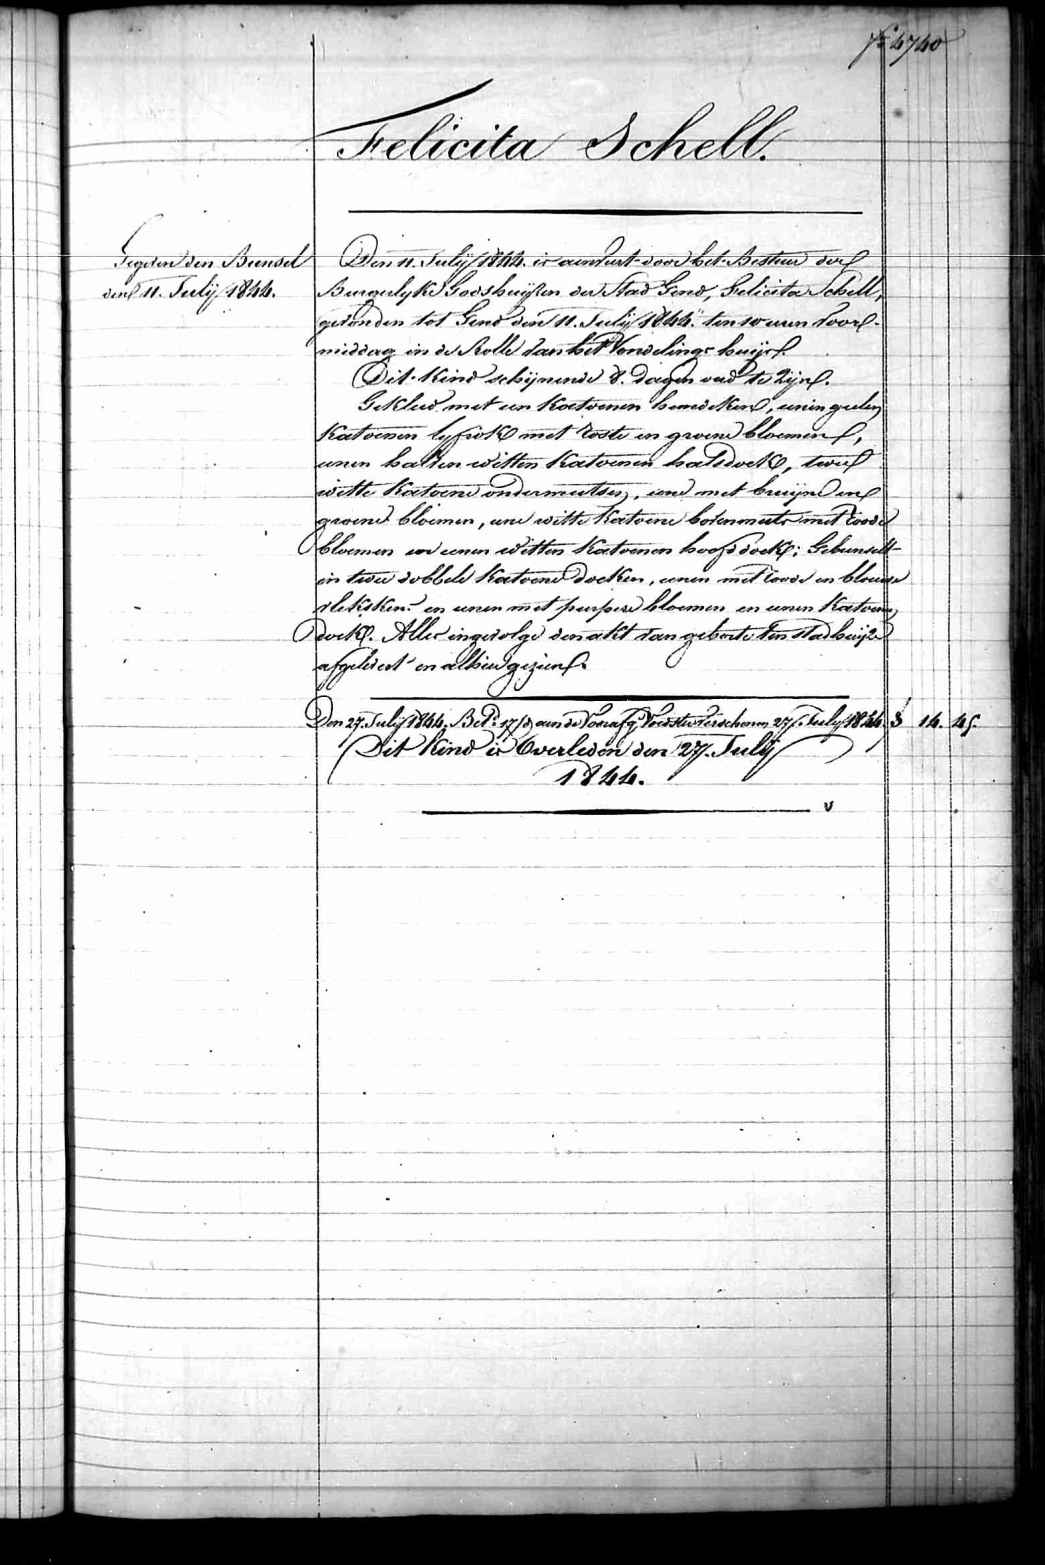 fº 4740
Felicita Schell.
Gegeven den Bunsel
den 11. Julij 1844.
Den 11. Julij 1844. is aenveert door het Bestuer der
Burgerlyke Godshuijsen der Stad Gend, Felicita Schell,
gevonden tot Gend den 11. Julij 1844. ten 10 uren voor-
middag in de Rolle van het Vondelings huijs.
Dit Kind schijnende 8. dagen oud te zijn.
Gekleed met een Katoenen hemdeken, eenen geelen
Katoenen lyfrok met roste en groene bloemen,
eenen halven witten Katoenen halsdoek, twee
witte Katoene ondermutsen, eene met bruijne en
groene bloemen, eene witte Katoene bovenmuts met roode
bloemen en eenen witten Katoenen hoofddoek; Gebunselt
in twee dobbele Katoene doeken, eenen met roode en blouwe
vlekskens en eenen met purpere bloemen en eenen Katoenen
doek. Alles ingevolge den akt van geboorte ten stadhuijze
afgelevert en alhier gezien.
Den 27. Julij 1844. Bet. 17/d aen de Voorsz. Voedster verschenen 27. July 1844. 3 14. 45.
Dit Kind is Overleden den 27. Julij
1844.